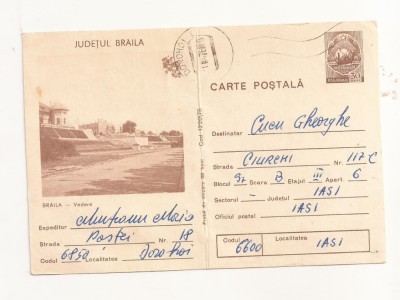 JUDEȚUL BRAILA
DOROHOI
CARTE POȘTALĂ
BRAILA — Vedere
Expeditor Munteanu Maria
Strada Poștei Nr. 18
Codul 6850 Localitatea Dorohoi
Destinatar Cucu Gheorghe
Strada CIURCHI Nr. 117 C
Blocul G7 Scara B Etajul III Apart. 6
Sectorul – Județul IASI
Oficiul poștal IASI
Codul 6600 Localitatea IASI